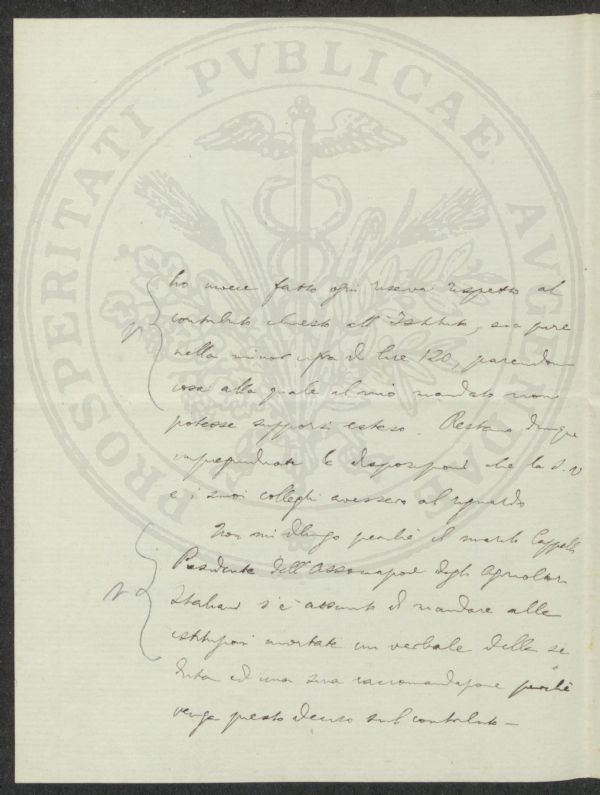 PROSPERITATI PVBLICAE AVGENDAE
ho invece fatto ogni riserva rispetto al
contributo chiesto all' Istituto, sia pure
nella minor cifra di lire 120, parendomi
cosa alla quale il mio mandato non
potesse supporsi esteso. Restano dunque
impregiudicate le disposizioni che la S. V
e i suoi colleghi avessero al riguardo
Non mi dilungo perchè il march Cappelli
Presidente dell'Associazione degli Agricoltori
Italiani s'è assunto di mandare alle
istituzioni invitate un verbale della se
duta ed una sua raccomandazione perchè
venga preso deciso sul contributo –